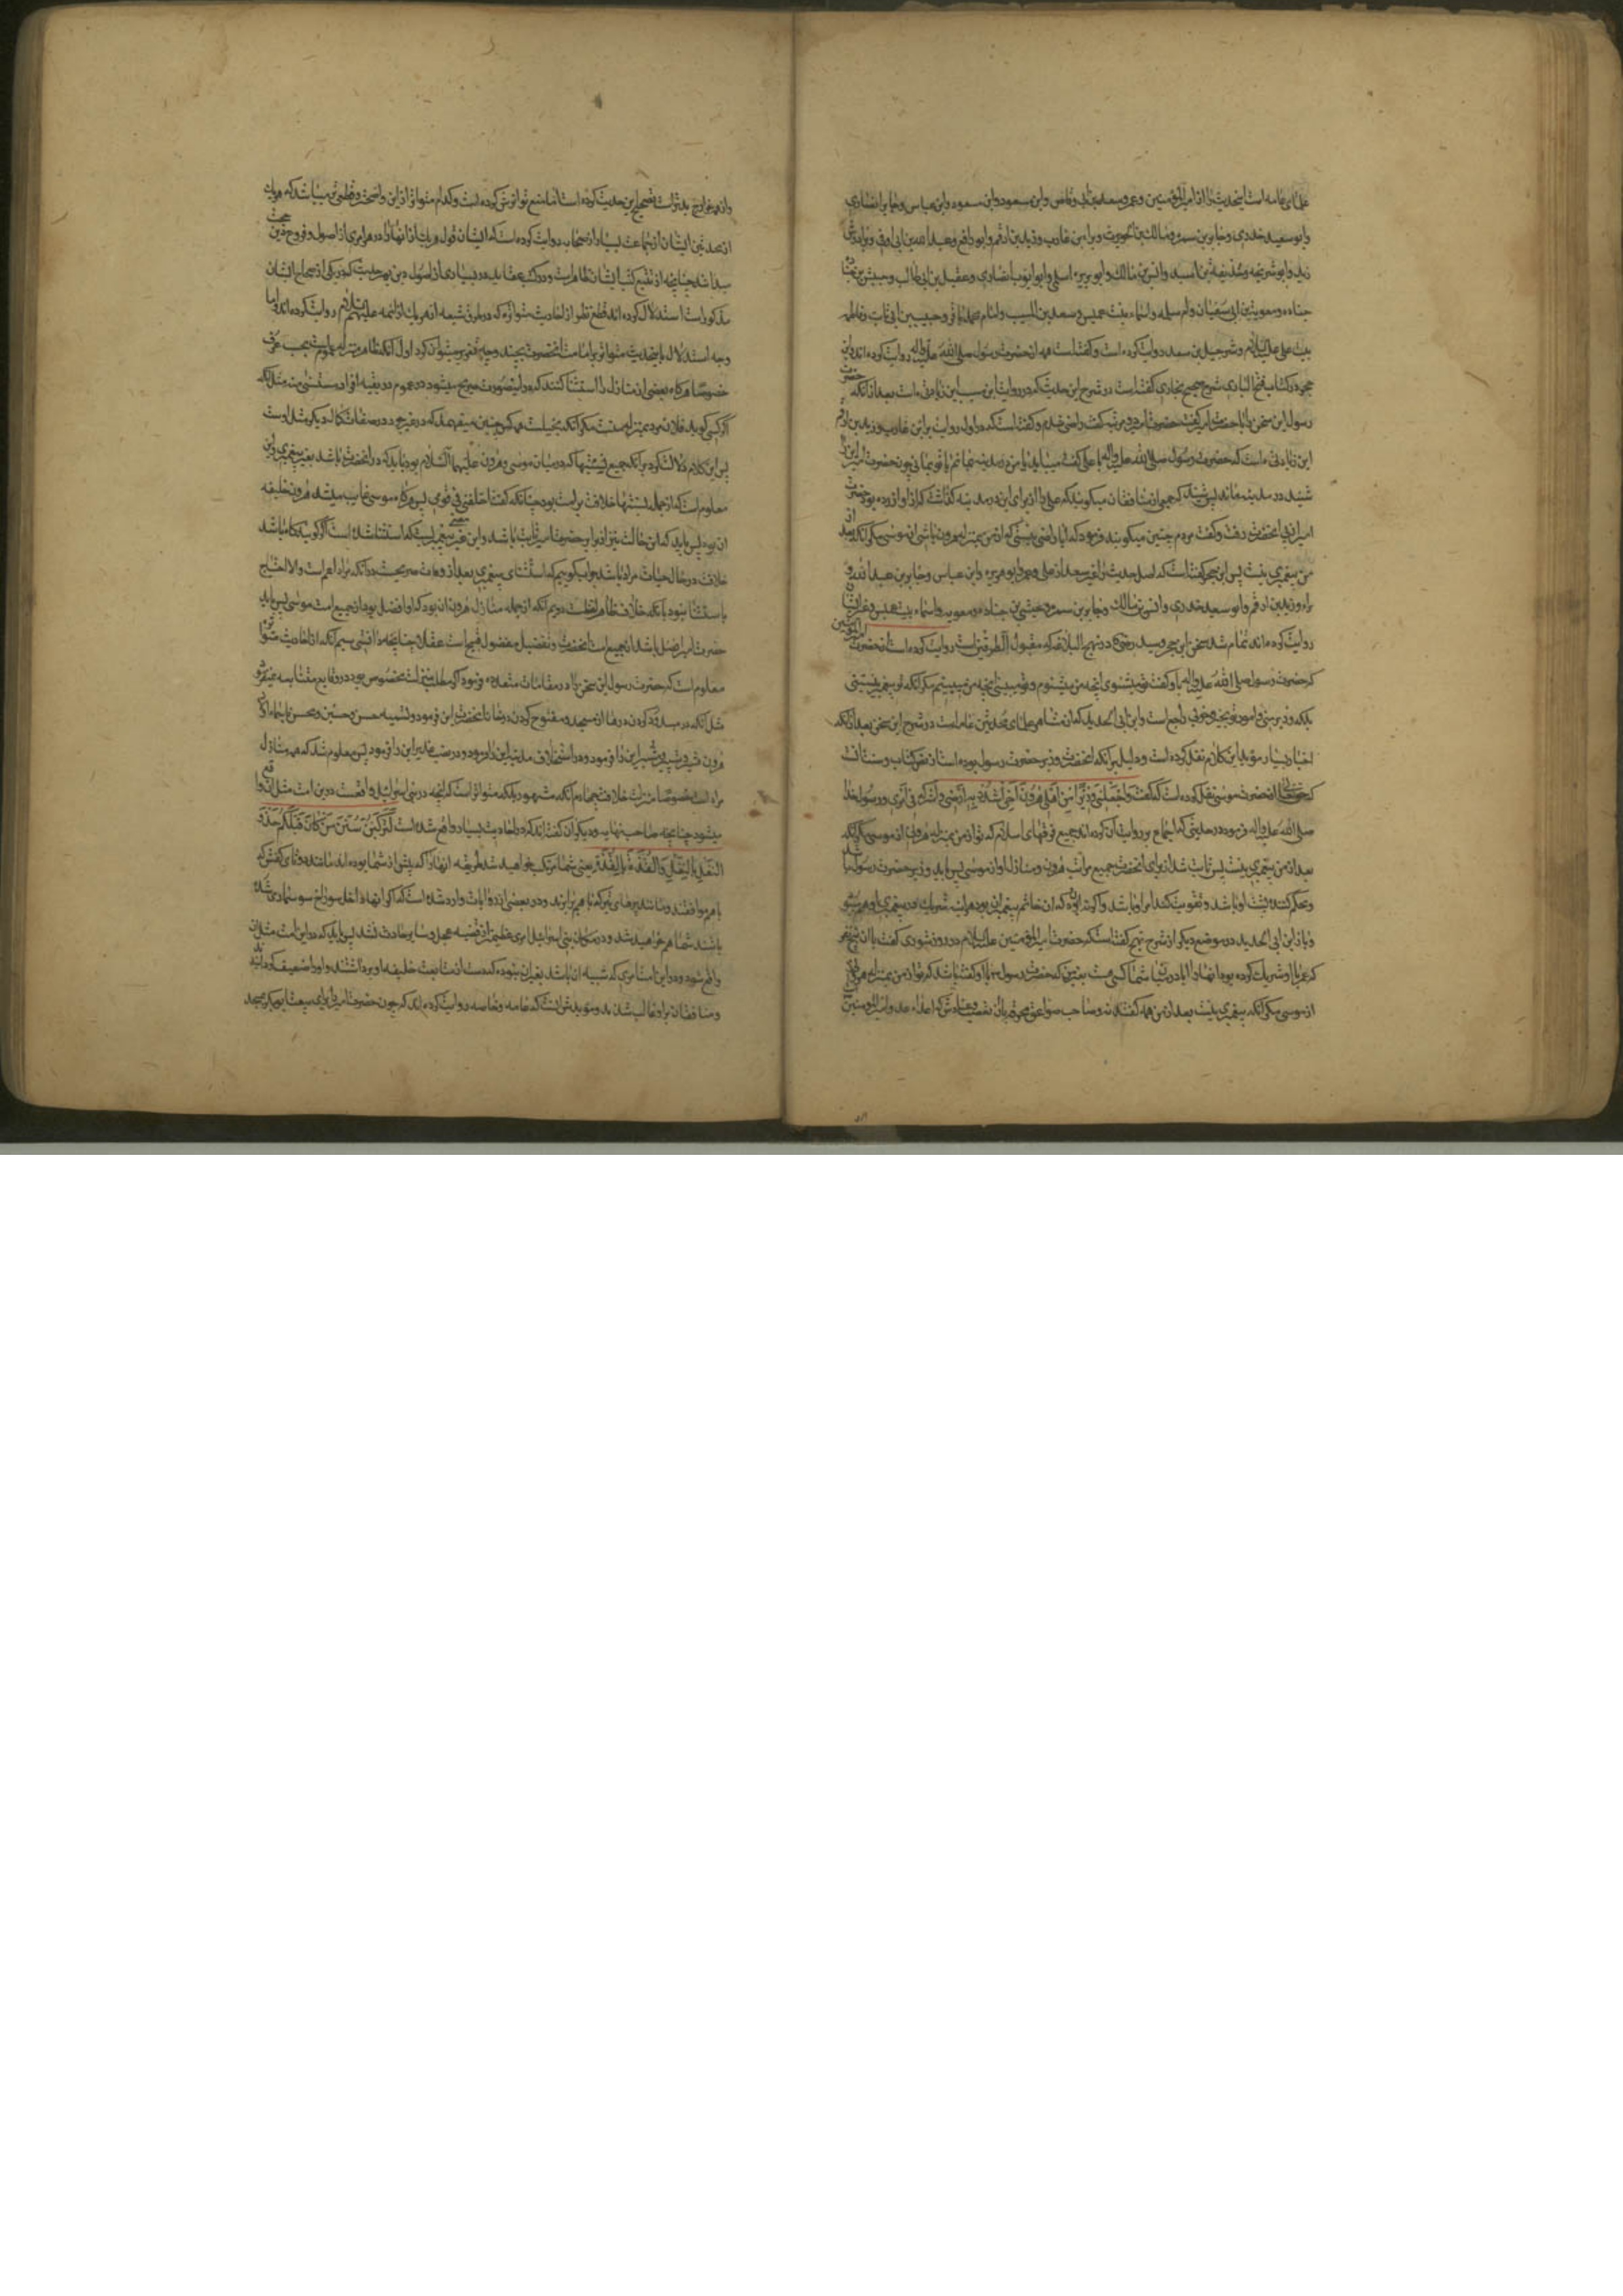 علمای عامه است این حدیث را از امیرالمؤمنین و عمر و سعد بن ابی وقاص و ابن مسعود و ابن عباس و جابر انصاری
و ابو سعید خدری و جابر بن سمره و مالک بن حویرث و براء بن عازب و زید بن ارقم و ابو رافع و عبدالله بن ابی اوفی و برادرش
زید و ابو شریحه و حذیفة بن اسید و انس بن مالک و ابو بریده اسلمی و ابو ایوب انصاری و عقیل بن ابی طالب و حبشی بن
جناده و معویة بن ابی سفیان و ام سلمه و اسماء بنت عمیس و سعید بن المسیب و امام محمد باقر و حبیب بن ابی ثابت و فاطمه
بنت علی علیه السلام و شرحبیل بن سعد روایت کرده است و گفته است همه از حضرت رسول صلی الله علیه واله روایت کرده اند و ابن
حجر در کتاب فتح الباری شرح صحیح بخاری گفته است در شرح این حدیث که در روایت ابن مسیب این زیادتی است بعد از آنکه حضرت
رسول این سخن را با حضرت امیر گفت حضرت امیر دو مرتبه گفت راضی شدم و گفته است که در اول روایت براء بن عازب و زید بن ارقم
این زیادتی است که حضرت رسول صلی الله علیه واله با علی گفت میباید یا من در مدینه بمانم یا تو بمانی چون حضرت امیر این را
شنید در مدینه ماند پس شنید که جمعی از منافقان میگویند که علی را از برای این در مدینه گذاشت که از او آزرده بود حضرت
امیر از پی آنحضرت رفت و گفت مردم چنین میگویند فرمود که آیا راضی نیستی که از من بمنزله هرون باشی از موسی مگر آنکه بعد از
من پیغمبری نیست پس ابن حجر گفته است که اصل حدیث را بغیر سعد از علی و عمر و ابو هریره و ابن عباس و جابر بن عبد الله و
براء و زید بن ارقم و ابو سعید خدری و انس بن مالک و جابر بن سمره و حبشی بن جناده و معویه و اسماء بنت عمیس و غیر ایشان
روایت کرده اند تمام شد سخن ابن حجر و سید رضی در نهج البلاغه که مقبول الطرفین است روایت کرده است از حضرت امیرالمؤمنین
که حضرت رسول صلی الله علیه واله باو گفت تو میشنوی آنچه من میشنوم و تو میبینی آنچه من میبینم مگر آنکه تو پیغمبر نیستی
بلکه وزیر منی و امور تو بخیر و خوبی راجع است و ابن ابی الحدید که از مشاهیر علمای محدثین عامه است در شرح این سخن بعد از آنکه
اخبار بسیار مؤید این کلام نقل کرده است و دلیل بر آنکه آنحضرت وزیر حضرت رسول بوده است از نص کتاب و سنت آنست
که حق تعالی از حضرت موسی نقل کرده است که گفت وَاجْعَلْ لِی وَزِیرًا مِنْ اَهْلِی هرُونَ اَخِی اشْدُدْ بِهِ اَزْرِی وَاَشْرِکْهُ فِی اَمْرِی و رسول خدا
صلی الله علیه واله فرموده در حدیثی که اجماع بر روایت آن کرده اند جمیع فرقهای اسلام که تو از من بمنزله هرونی از موسی مگر آنکه
بعد از من پیغمبری نیست پس ثابت شد از برای آنحضرت جمیع مراتب هرون و منازل او از موسی پس باید وزیر حضرت رسول باشد
و محکم کننده پشت او باشد و تقویت کننده امر او باشد و اگر نه آن بود که آن خاتم پیغمبران بود هرآینه شریک در پیغمبری او هم میشد
و باز ابن ابی الحدید در موضع دیگر از شرح نهج گفته است که حضرت امیرالمؤمنین علیه السلام در روز شوری گفت با آن پنج نفر
که عمر با او شریک کرده بود آنها را آیا در میان شما کسی هست بغیر من که حضرت رسول باو گفته باشد که تو از من بمنزله هرونی
از موسی مگر آنکه پیغمبری نیست بعد از من همه گفتند نه و صاحب صواعق محرقه با آن تعصب و عنادش که اعداء عدو امیرالمؤمنین
و از همه خوارج بدتر است تصحیح این حدیث کرده است اما منع تواترش کرده است و کدام متواتر از این واضحتر و قطعی تر میباشد که هر یک
از محدثین ایشان از جماعت بسیار از صحابه روایت کرده است که ایشان قول هر یک از آنها را در هر امری از اصول و فروع دین حجت
میدانند چنانچه از تتبع کتب ایشان ظاهر است و در کتب عقاید در بسیاری از اصول دین بهر حدیث که در یکی از صحاح ایشان
مذکور است استدلال کرده اند قطع نظر از احادیث متواتره که در طرق شیعه از هر یک از ائمه علیهم السلام روایت کرده اند و اما
وجه استدلال باین حدیث متواتر بر امامت آنحضرت بچند وجه تقریر میتوان کرد اول آنکه ظاهر منزله عموم است بحسب عرف
خصوصا هرگاه بعضی از منازل را استثنا کنند که در این صورت صریح میشود در عموم در بقیه افراد مستثنی منه مثل آنکه
اگر کسی گوید فلان مرد بمنزله منست مگر آنکه بخیلست همه کس چنین میفهمد که در غیر جود در صفات کمال دیگر مثل اوست
پس این کلام دلالت کرد بر آنکه جمیع نسبتها که در میان موسی و هرون علیهما السلام بود باید که در آنحضرت باشد بغیر پیغمبری و این
معلوم است که از جمله نسبتها خلافت بر امت بود چنانکه گفت اخلفنی فی قومی پس هرگاه موسی غایب میشد هرون خلیفه
آن بود پس باید که این حالت نیز از برای حضرت امیر ثابت باشد و این غیر معنی پیغمبریست که استثنا شده است اگر گویند گاه باشد
خلافت در حال حیات مراد باشد جواب گوییم که استثنای پیغمبری بعد از وفات صریحست در آنکه مراد اعم است و الا احتیاج
باستثنا نبود با آنکه خلاف ظاهر لفظست دویم آنکه از جمله منازل هرون آن بود که او افضل بود از جمیع امت موسی پس باید
حضرت امیر افضل باشد از جمیع امت آنحضرت و تفضیل مفضول قبیح است عقلا چنانچه دانستی سیم آنکه از احادیث متواتره
معلوم است که حضرت رسول این سخن را در مقامات متعدده فرمود که مطلب منزلت مخصوص بود در وقایع متشابه میفرمود
مثل آنکه در سد کردن درها از مسجد و مفتوح کردن در خانه آنحضرت این فرمود و تشبیه حسن و حسین و محسن باسماء اولاد
هرون شبر و شبیر و مشبر این را فرمود و در استخلاف مدینه این را فرمود و در منی و غدیر این را فرمود پس معلوم شد که همه منازل
مراد است خصوصا منزلت خلافت چهارم آنکه مشهور بلکه متواتر است که آنچه در بنی اسرائیل واقعست در این امت مثل آن واقع
میشود چنانچه صاحب نهایه و دیگران گفته اند که در احادیث بسیار واقع شده است لَتَرْکَبُنَّ سُنَنَ مَنْ کَانَ قَبْلَکُمْ حَذْوَ
النَّعْلِ بِالنَّعْلِ وَالْقُذَّةِ بِالْقُذَّةِ یعنی شما مرتکب خواهید شد طریقه آنها را که پیش از شما بوده اند مانند دو تای کفش که
با هم موافقند و مانند پرهای تیر که با هم برابرند و در بعضی از روایات وارد شده است که اگر آنها داخل سوراخ سوسماری شده
باشند شما هم خواهید شد و در میان بنی اسرائیل امری عظیمتر از قضیه عجل و سامری حادث نشد پس باید که در این امت مثل آن
واقع شود و در این امت امری که شبیه آن باشد بغیر آن نبود که دست از متابعت خلیفه او برداشتند و او را ضعیف کردانیدند
و منافقان بر او غالب شدند و مؤیدش آنست که عامه و خاصه روایت کرده اند که چون حضرت امیر را برای بیعت ابوبکر بمسجد